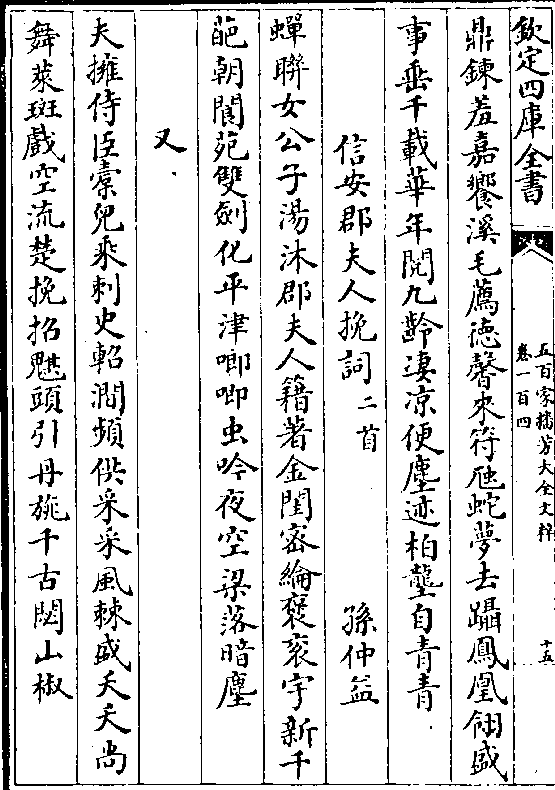 欽定四庫全書
五百家播芳大全文粹
卷一百四
十五
鼎鍊羞嘉饗溪毛薦德馨來符虺蛇夢去躡鳳凰翎盛
事垂千載華年閱九齡淒凉便塵迹柏壟自青青
信安郡夫人挽詞二首 孫仲益
蟬聯女公子湯沐郡夫人籍著金閨密綸褒衮字新千
葩朝閬苑雙劍化平津唧唧虫吟夜空梁落暗塵
又
夫擁侍臣橐兒乘刺史軺澗頻供采采風棘盛夭夭尚
舞萊斑戲空流楚挽招魌頭引丹旐千古閟山椒